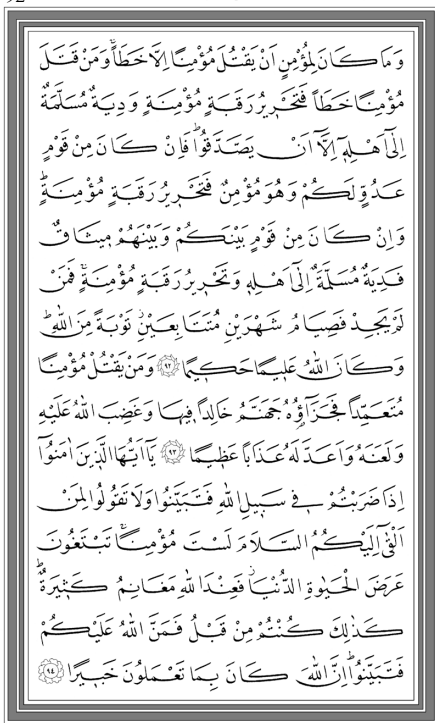 وَمَا كَانَ لِمُؤْمِنٍ اَنْ يَقْتُلَ مُؤْمِنًا اِلَّا خَطَـًٔاۚ وَمَنْ قَتَلَ
مُؤْمِنًا خَطَـًٔا فَتَحْر۪يرُ رَقَبَةٍ مُؤْمِنَةٍ وَدِيَةٌ مُسَلَّمَةٌ
اِلٰٓى اَهْلِه۪ٓ اِلَّٓا اَنْ يَصَّدَّقُواۜ فَاِنْ كَانَ مِنْ قَوْمٍ
عَدُوٍّ لَكُمْ وَهُوَ مُؤْمِنٌ فَتَحْر۪يرُ رَقَبَةٍ مُؤْمِنَةٍۜ
وَاِنْ كَانَ مِنْ قَوْمٍ بَيْنَكُمْ وَبَيْنَهُمْ م۪يثَاقٌ
فَدِيَةٌ مُسَلَّمَةٌ اِلٰٓى اَهْلِه۪ وَتَحْر۪يرُ رَقَبَةٍ مُؤْمِنَةٍۚ فَمَنْ
لَمْ يَجِدْ فَصِيَامُ شَهْرَيْنِ مُتَتَابِعَيْنِۘ تَوْبَةً مِنَ اللّٰهِۜ
وَكَانَ اللّٰهُ عَل۪يمًا حَك۪يمًا ﴿٩٢﴾ وَمَنْ يَقْتُلْ مُؤْمِنًا
مُتَعَمِّدًا فَجَزَٓاؤُ۬هُ جَهَنَّمُ خَالِدًا ف۪يهَا وَغَضِبَ اللّٰهُ عَلَيْهِ
وَلَعَنَهُ وَاَعَدَّ لَهُ عَذَابًا عَظ۪يمًا ﴿٩٣﴾ يَٓا اَيُّهَا الَّذ۪ينَ اٰمَنُٓوا
اِذَا ضَرَبْتُمْ ف۪ي سَب۪يلِ اللّٰهِ فَتَبَيَّنُوا وَلَا تَقُولُوا لِمَنْ
اَلْقٰٓى اِلَيْكُمُ السَّلَامَ لَسْتَ مُؤْمِنًاۚ تَبْتَغُونَ
عَرَضَ الْحَيٰوةِ الدُّنْيَاۘ فَعِنْدَ اللّٰهِ مَغَانِمُ كَث۪يرَةٌۜ
كَذٰلِكَ كُنْتُمْ مِنْ قَبْلُ فَمَنَّ اللّٰهُ عَلَيْكُمْ
فَتَبَيَّنُواۜ اِنَّ اللّٰهَ كَانَ بِمَا تَعْمَلُونَ خَب۪يرًا ﴿٩٤﴾